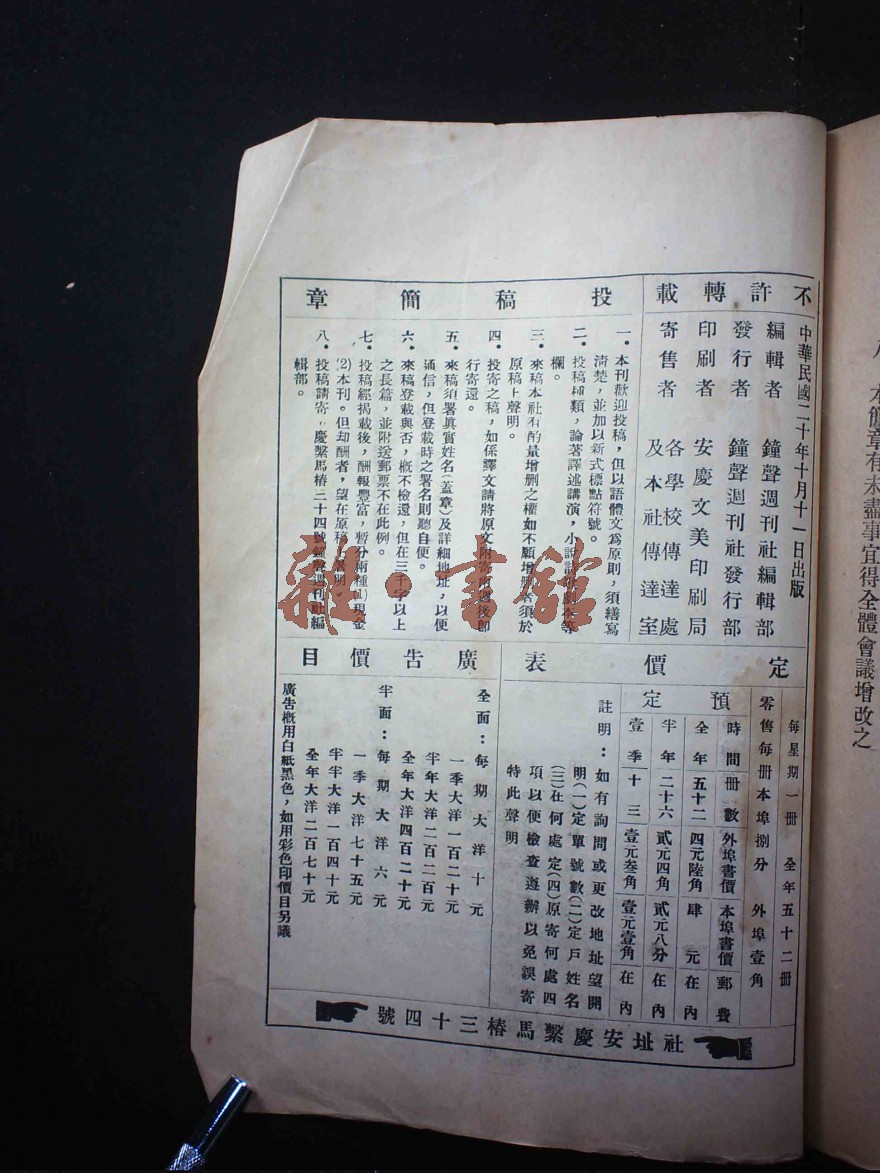 不許轉載
中華民國二十年十月十一日出版
編輯者 鐘聲週刊社編輯部
發行者 鐘聲週刊社發行部
印刷者 安慶文美印刷局
寄售者 各學校傳達處
及本社傳達室
投稿簡章
一．本刊歡迎投稿，但以語體文爲原則，須繕寫
清楚，並加以新式標點符號。
二．投稿種類，論著譯述講演，小說詩歌劇本等
欄。
三．來稿本社有酌量增删之權如不願增删者須於
原稿上聲明。
四．投寄之稿，如係譯文請將原文附寄兩週後卽
行寄還。
五．來稿須署眞實姓名（蓋章）及詳細地址，以便
通信，但登載時之署名則聽自便。
六．來稿登載與否，槪不檢還，但在三千字以上
之長篇，並附送郵票不在此例。
七．投稿經揭載後，酬報豐富，暫分兩種(1)現金
(2)本刊。但却酬者，望在原稿上署明。
八．投稿請寄 慶繫馬椿三十四號鐘聲週刊社編
輯部。
定價表
每星期一册 全年五十二册
零售每册本埠捌分 外埠壹角
預定
時間 册數 外埠書價 本埠書價 郵費
全年 五十二 四元陸角 肆元 在內
半年 二十六 貳元四角 貳元八分 在內
壹季 十三 壹元叁角 壹元壹角 在內
註明：如有詢問或更改地址望開
明(一)定單號數(二)定戶姓名
(三)在何處定(四)原寄何處四
項以便檢查遵辦以免誤寄
特此聲明
廣告價目
全面：每期大洋十元
一季大洋一百二十元
半年大洋二百二百元
全年大洋四百二十元
半面：每期大洋六元
一季大洋七十五元
半年大洋一百四十元
全年大洋二百七十元
廣告槪用白紙黑色，如用彩色印價目另議
社址安慶繫馬椿三十四號
本簡章有未盡事宜得全體會議增改之
雜·書館